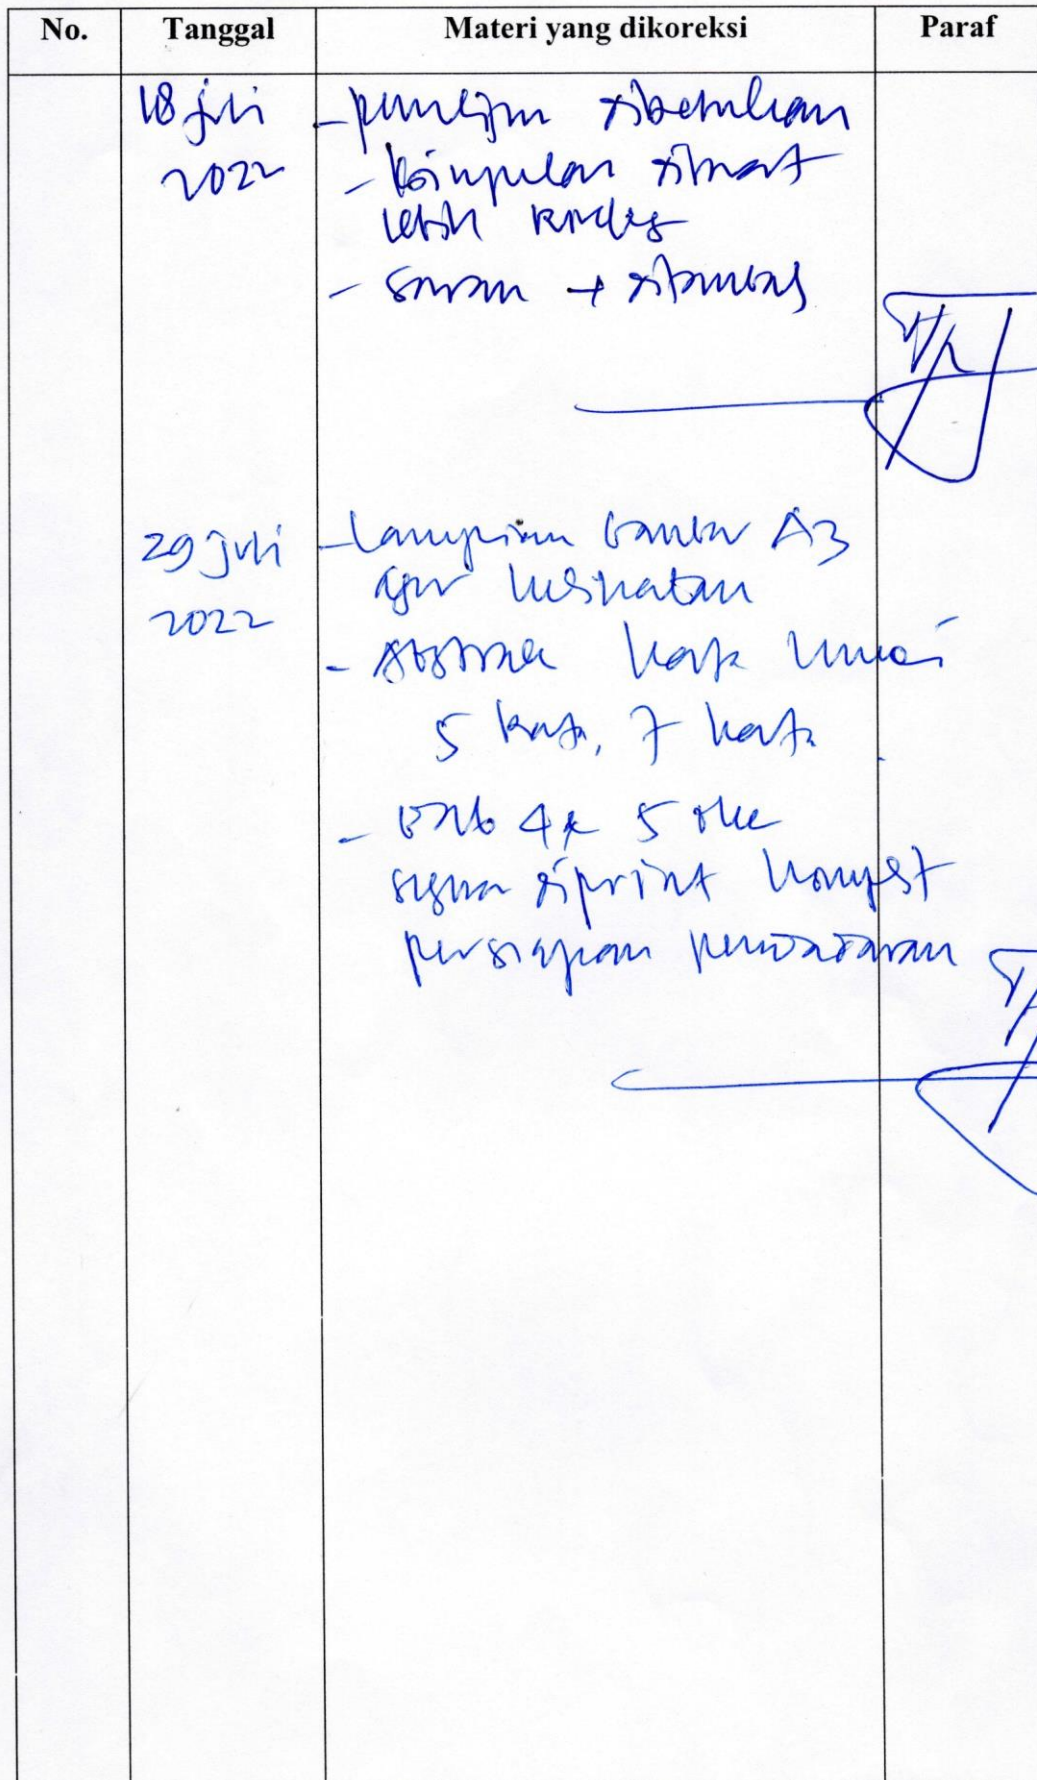 No. Tanggal Materi yang dikoreksi Paraf
18 juli - dibetulkan
2022 - kesimpulan dibuat
lebih
- Saran → ditambah
29 juli - Lampiran Gambar A3
2022 agar kelihatan
- Abstrak kata kunci
5 kata, 7 kata
- Bab 4 & 5 oke
segera diprint komplit
persiapan pendadaran